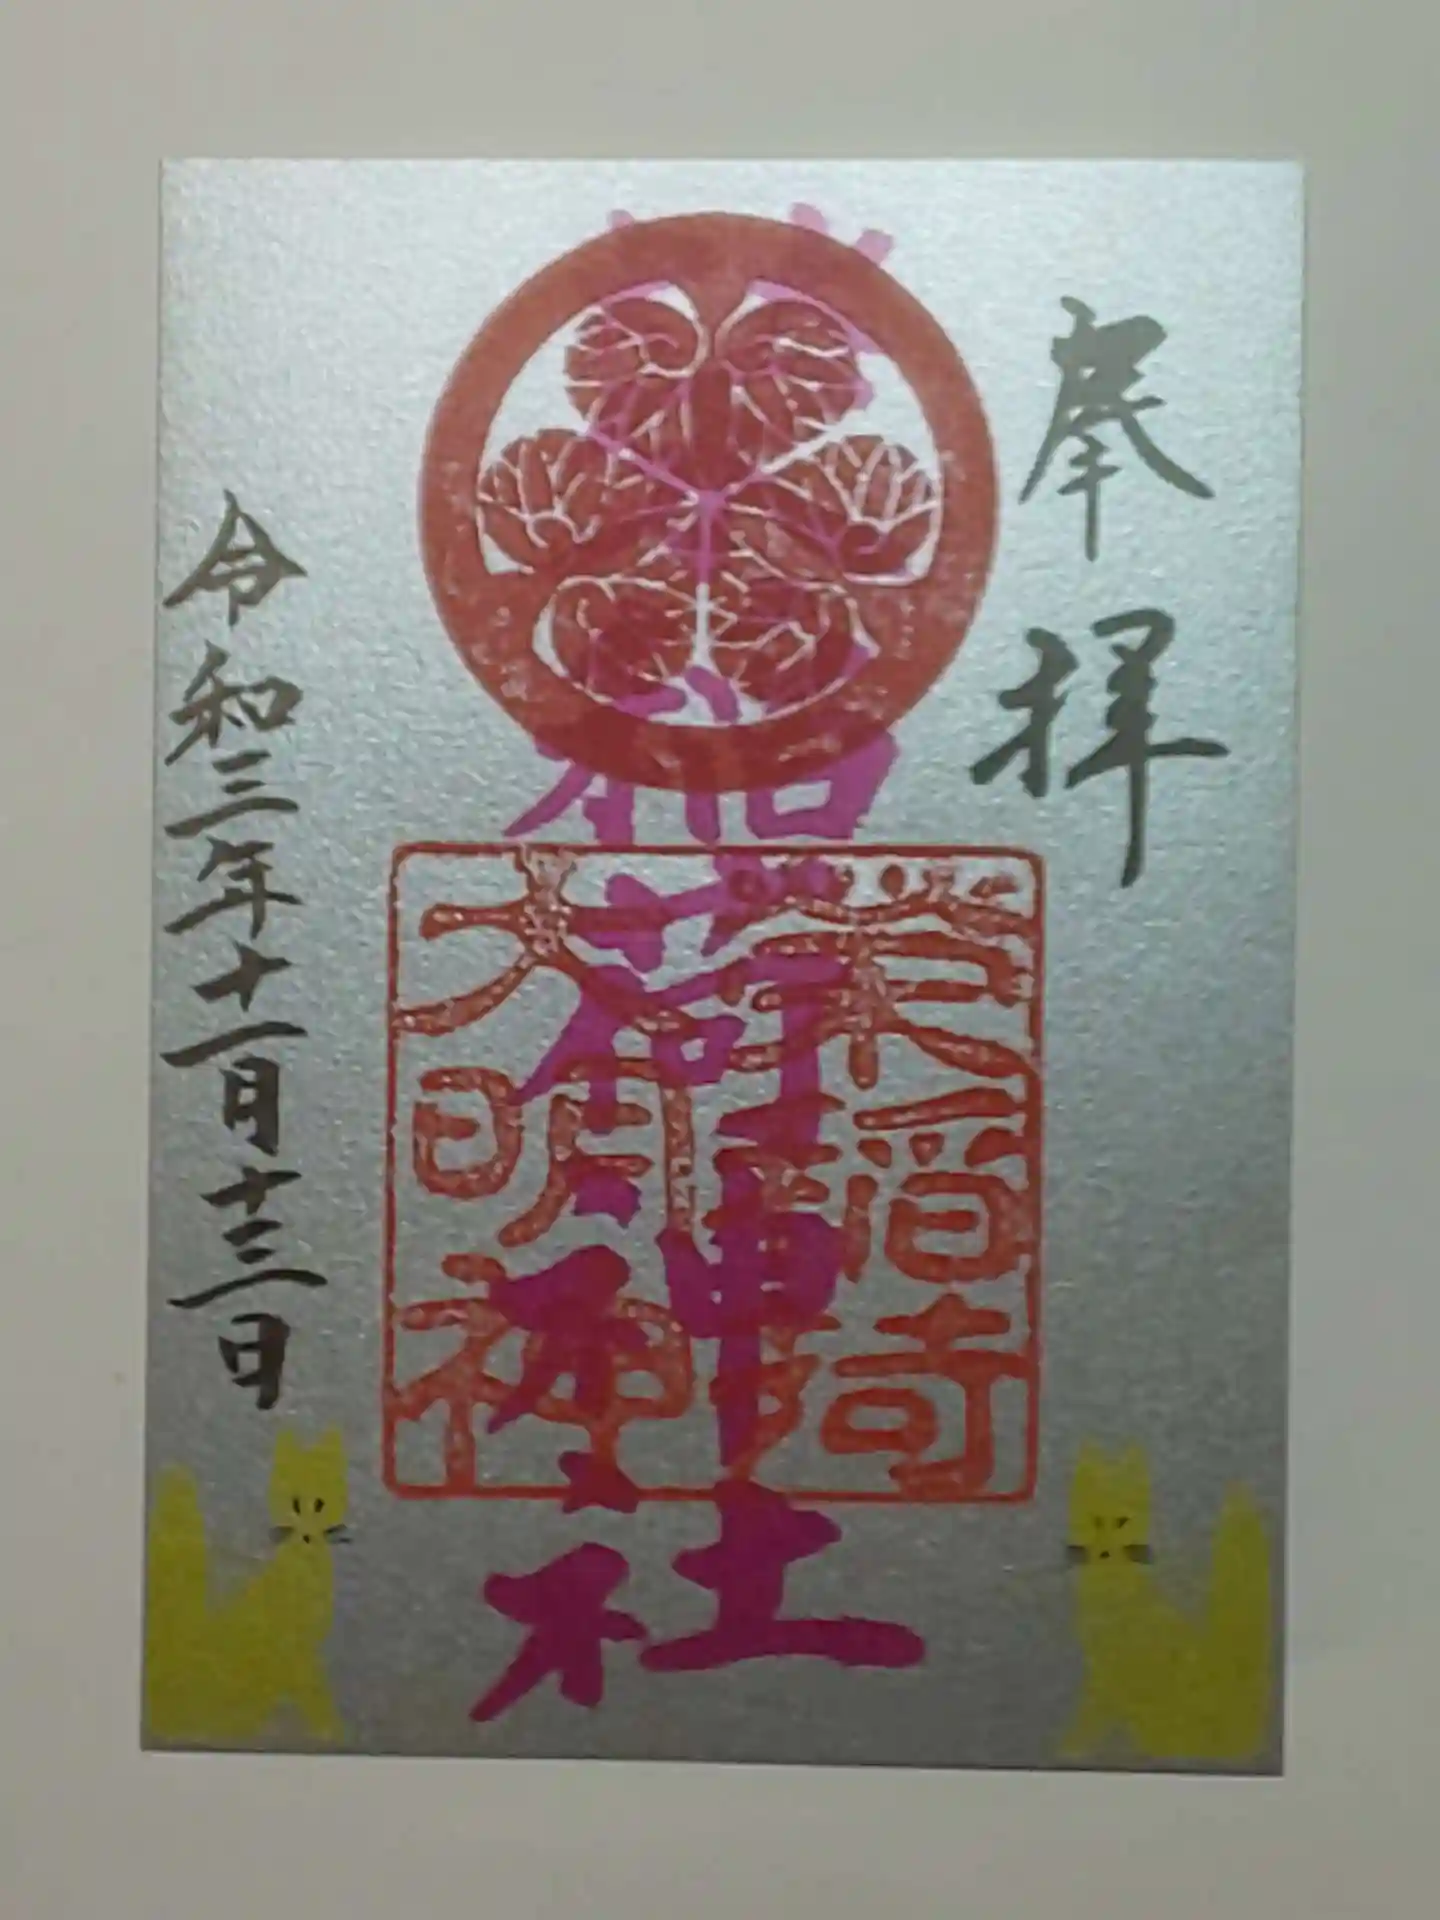 奉拝
稲荷神社
稲荷
大明神
令和三年十一月十三日